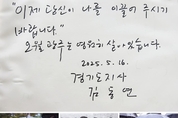 "이제 당신이 나를 이끌어 주시기
바랍니다."
오월 광주는 영원히 살아있습니다.
2025. 5. 16.
경기도지사
김동연